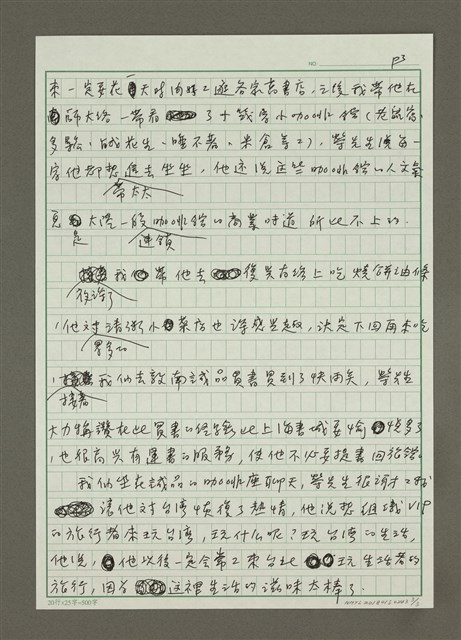 NO.
P3
來一定要花 天時間好好逛各家書店,之後我帶他在
師大路一帶看 了十幾家小咖啡館(老鼠
多點、挪威、睡不著、米倉等等),等先生說每一
家他都想進去坐坐,他還說這些咖啡館的人文氣
帶太太
息 大陸一般咖啡館的商業味道 所比不上的.
是 連鎖
我 帶他去 復興南路上吃燒餅油條
,他對清粥小菜店也深感興趣,決定下回再來吃
我們去敦南誠品買書買到了快兩點,
接著
大力稱讚在此買書的經驗比上海書城要愉 快多了
,也很高興有運書的服務,使他不必要提書回旅館.
我們坐在誠品的咖啡座聊天,
讓他對台灣恢復了熱情,他說想組織VIP
的旅行者來玩台灣,玩什么呢?玩台灣的生活,
他說, 他以後一定會常常來台北 玩生活者的
旅行,因為 這裡生活的滋味太棒了.
20行×25字=500字